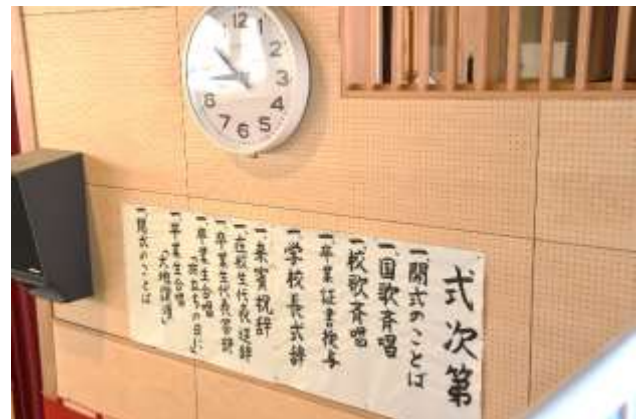 12
2
3
4
5
6
7
8
式次第
一、開式のことば
一、国歌斉唱
一、校歌斉唱
一、卒業証書授与
一、学校長式辞
一、来賓祝辞
一、在校生代表送辞
一、卒業生代表答辞
一、卒業生合唱
「旅立ちの日に」
一、卒業生合唱
「大地讃頌」
一、閉式のことば